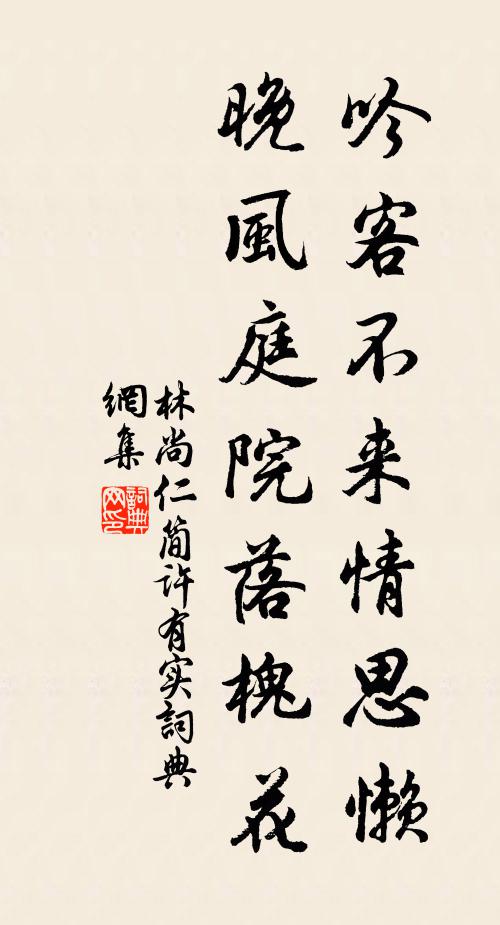 吟客不来情思懒
晚風庭院落槐花
林尚仁简许有实詞典
網集
詞典
网印